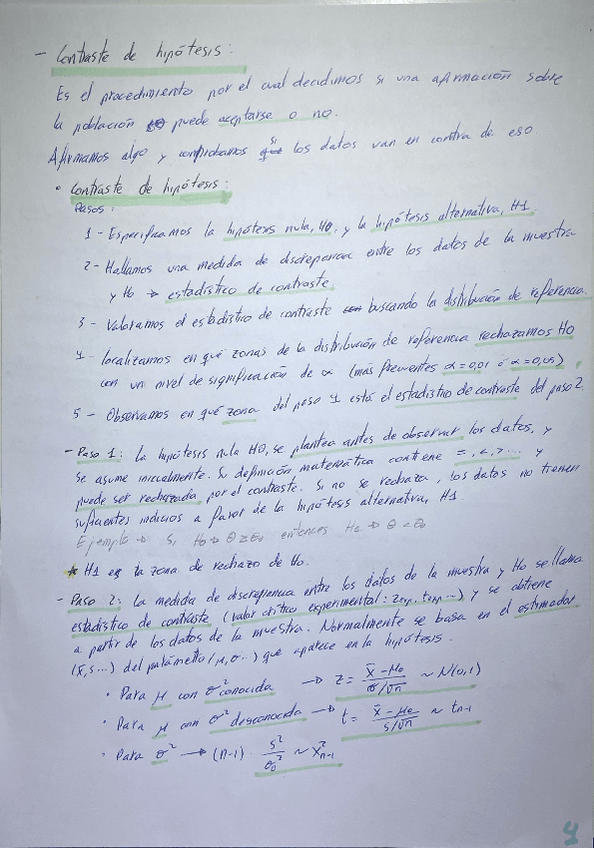 - Contraste de hipótesis:
Es el procedimiento por el cual decidimos si una afirmación sobre
la población puede aceptarse o no.
Afirmamos algo y comprobamos si los datos van en contra de eso
• Contraste de hipótesis:
Pasos:
1 - Especificamos la hipótesis nula, H0, y la hipótesis alternativa, H1.
2 - Hallamos una medida de discrepancia entre los datos de la muestra
y H0 → estadístico de contraste.
3 - Valoramos el estadístico de contraste buscando la distribución de referencia.
4 - localizamos en qué zonas de la distribución de referencia rechazamos H0
con un nivel de significación de α (más frecuentes α = 0,01 ó α = 0,05).
5 - Observamos en qué zona del paso 4 está el estadístico de contraste del paso 2.
- Paso 1: la hipótesis nula H0, se plantea antes de observar los datos, y
se asume inicialmente. Su definición matemática contiene =, <, >... y
puede ser rechazada, por el contraste. Si no se rechaza, los datos no tienen
suficientes indicios a favor de la hipótesis alternativa, H1.
Ejemplo → Si H0 → θ ≥ θ0 entonces H1 → θ < θ0
* H1 es la zona de rechazo de H0.
- Paso 2: la medida de discrepancia entre los datos de la muestra y H0 se llama
estadístico de contraste (valor crítico experimental: Zexp, texp...) y se obtiene
a partir de los datos de la muestra. Normalmente se basa en el estimador
(x̄, s...) del parámetro (μ, σ...) que aparece en la hipótesis.
• Para μ con σ² conocida → z = x̄ - μ0 / σ/√n ~ N(0,1)
• Para μ con σ² desconocida → t = x̄ - μ0 / s/√n ~ tn-1
• Para σ² → (n-1) · s² / σ0² ~ X²n-1
4